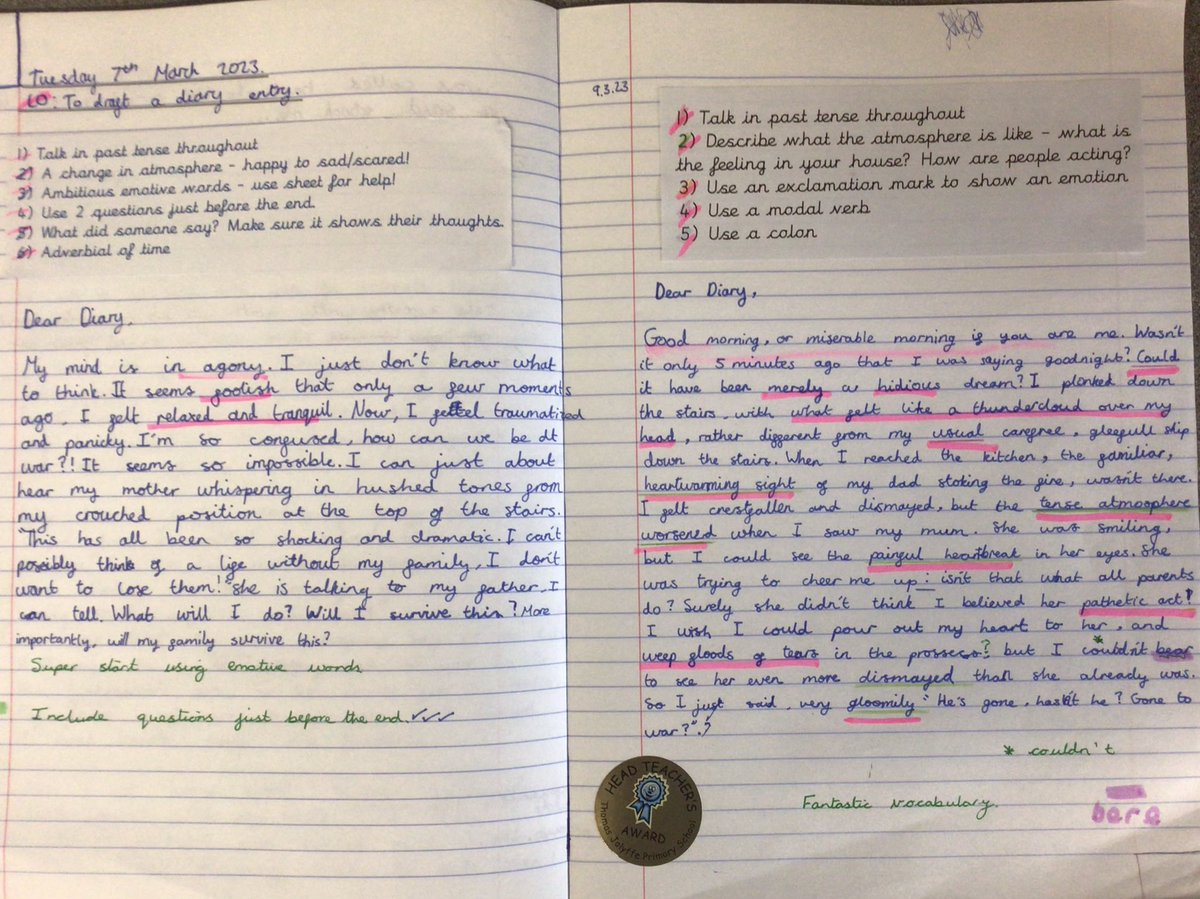 Tuesday 7th March 2023.
LO: To draft a diary entry.
1) Talk in past tense throughout
2) A change in atmosphere - happy to sad/scared!
3) Ambitious emotive words - use sheet for help!
4) Use 2 questions just before the end.
5) What did someone say? Make sure it shows their thoughts.
6) Adverbial of time
Dear Diary,
My mind is in agony. I just don't know what
to think. It seems foolish that only a few moments
ago, I felt relaxed and tranquil. Now, I feel traumatized
and panicky. I'm so confused, how can we be at
war?! It seems so impossible. I can just about
hear my mother whispering in hushed tones from
my crouched position at the top of the stairs.
"This has all been so shocking and dramatic. I can't
possibly think of a life without my family, I don't
want to lose them!" She is talking to my father, I
can tell. What will I do? Will I survive this? More
importantly, will my family survive this?
Super start using emotive words
Include questions just before the end. ✓✓✓
9.3.23
1) Talk in past tense throughout
2) Describe what the atmosphere is like - what is
the feeling in your house? How are people acting?
3) Use an exclamation mark to show an emotion
4) Use a modal verb
5) Use a colon
Dear Diary,
Good morning, or miserable morning if you are me. Wasn't
it only 5 minutes ago that I was saying goodnight? Could
it have been merely a hidious dream? I plonked down
the stairs, with what felt like a thundercloud over my
head, rather different from my usual carefree, gleefull skip
down the stairs. When I reached the kitchen, the familiar,
heartwarming sight of my dad stoking the fire, wasn't there.
I felt crestfallen and dismayed, but the tense atmosphere
worsened when I saw my mum. She was smiling,
but I could see the painful heartbreak in her eyes. She
was trying to cheer me up: isn't that what all parents
do? Surely she didn't think I believed her pathetic act!
I wish I could pour out my heart to her, and
weep floods of tears in the prossess? but I *couldn't bear
to see her even more dismayed than she already was.
So I just said, very gloomily "He's gone, hasn't he? Gone to
war?".
* couldn't
Fantastic vocabulary.
bare
HEAD TEACHER'S
AWARD
Thomas Jolyffe Primary School